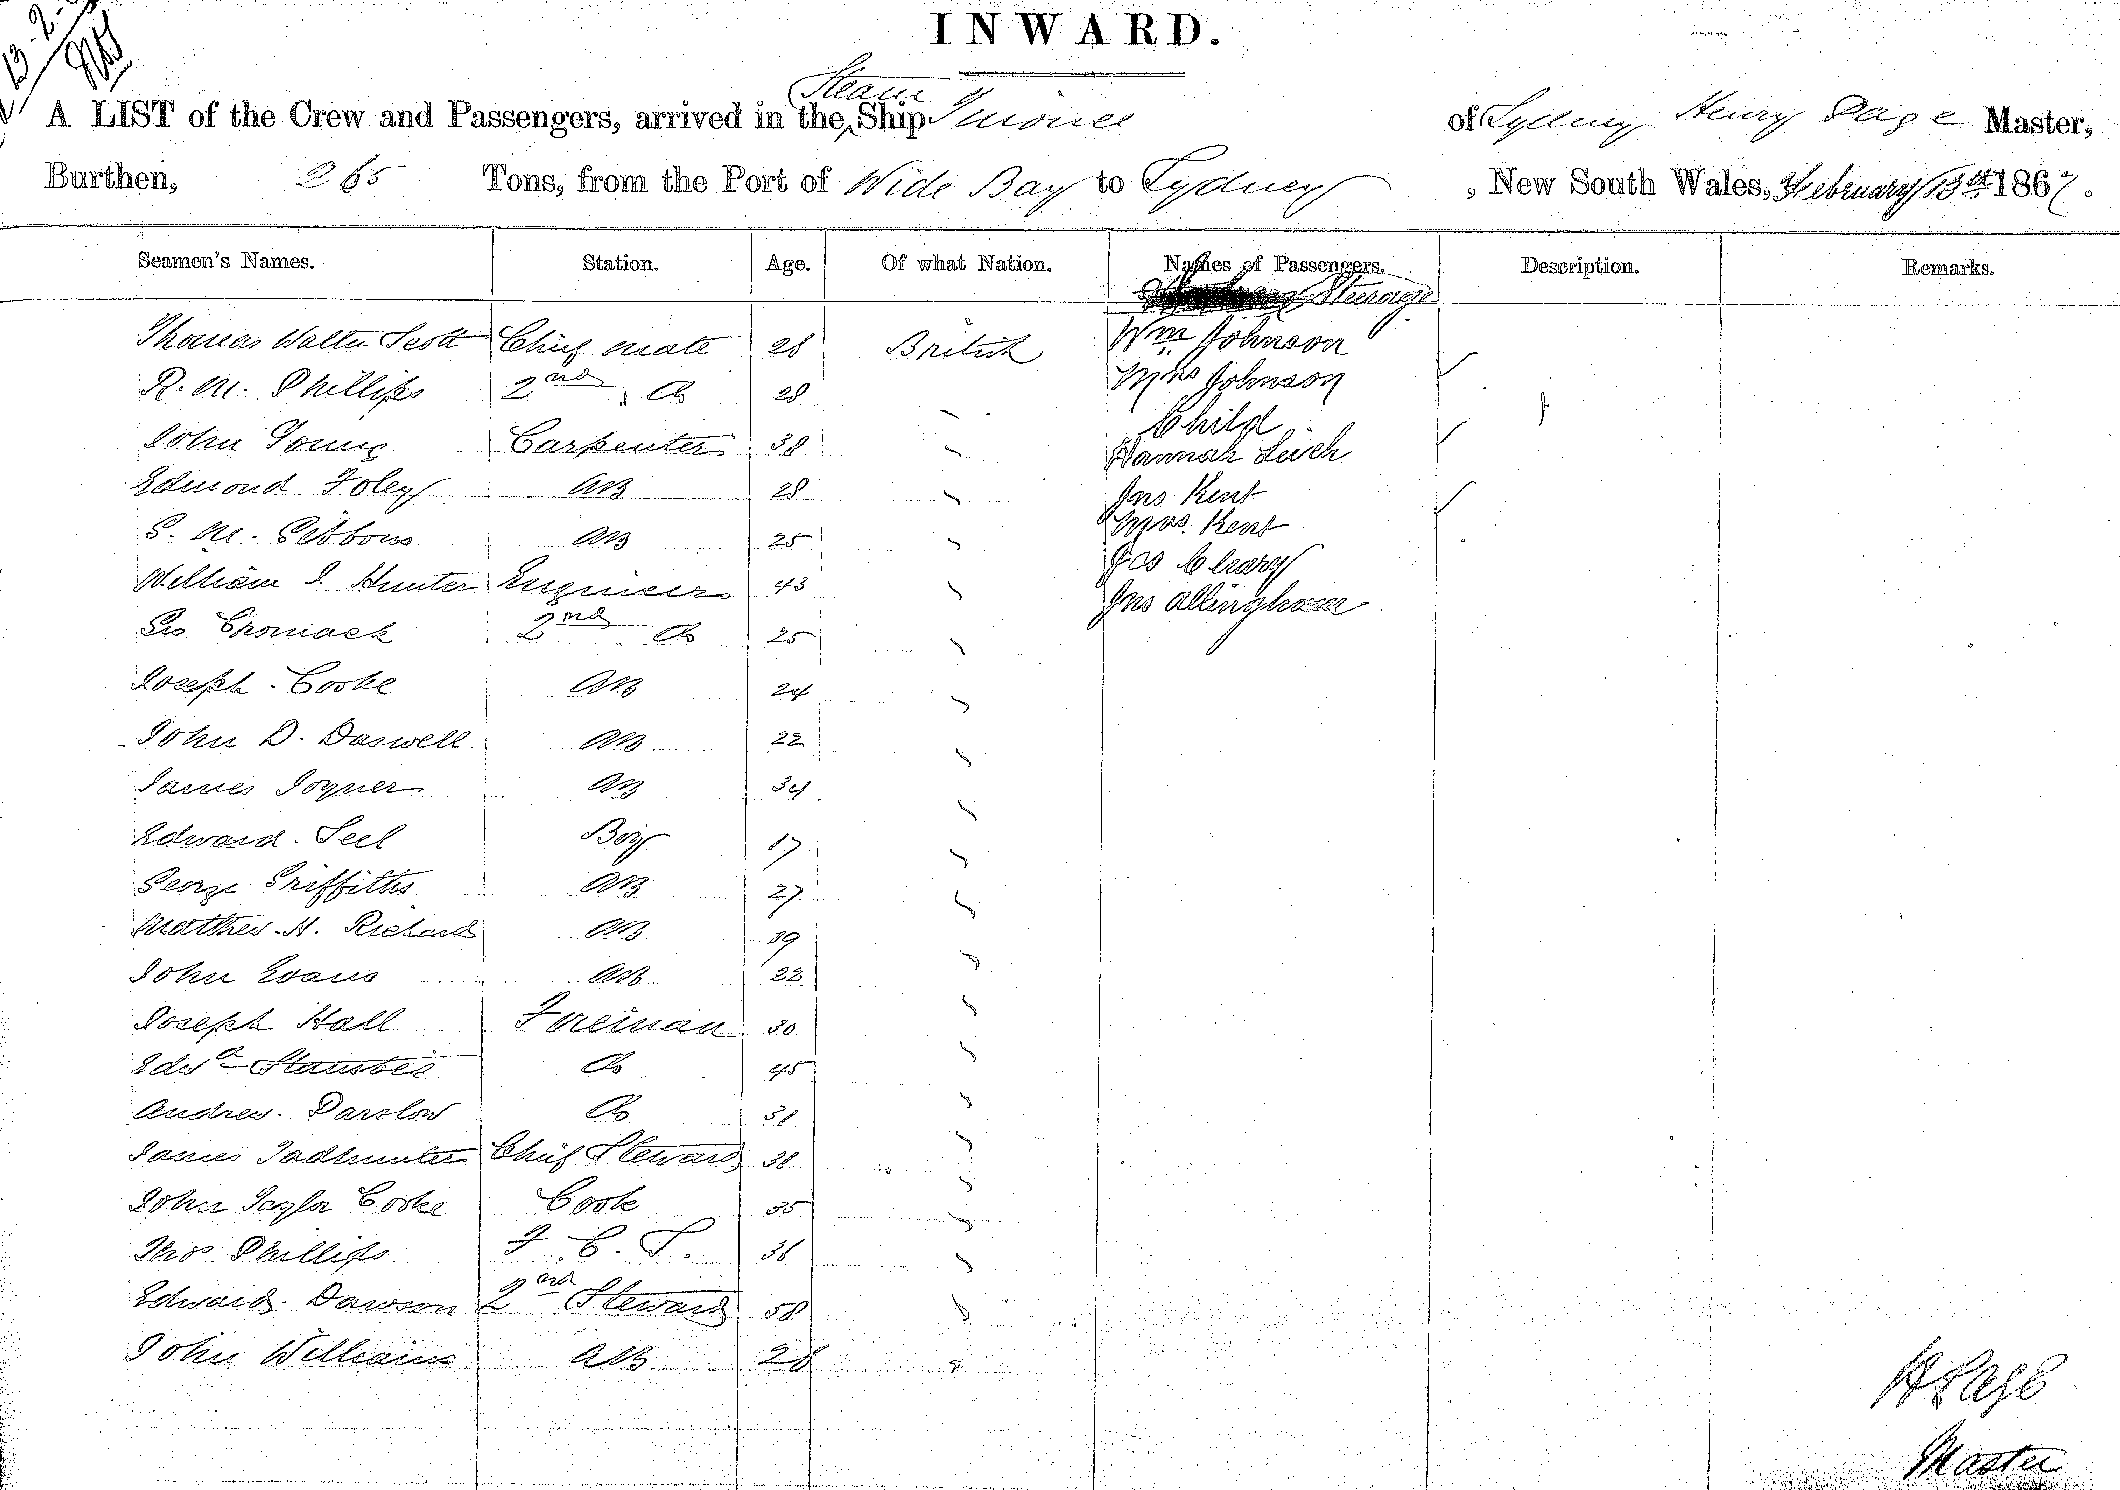 13-2-
INWARD.
A LIST of the Crew and Passengers, arrived in the Steam Ship of Sydney Henry Page Master,
Burthen, 265 Tons, from the Port of Wide Bay to Sydney, New South Wales, February 13th 1867.
Seamen's Names. Station. Age. Of what Nation. Names of Passengers. Description. Remarks.
Steerage
Thomas Walter Scott Chief mate 28 British Wm Johnson
R. M. Phillips 2nd Do 28 Mrs Johnson
Child
John Young Carpenter 38 Hannah
Edmond Foley AB 28 Jno Kent
S. M. Gibbons AB 25 Mrs. Kent
William I Hunter Engineer 43 Jas Cleary
Jno Allingham
Geo Cromack 2nd Do 25
Joseph Cooke AB 24
John D. Daswell AB 22
James Joyner AB 34
Edward Seel Boy 17
George Griffiths AB 27
Matthew H. Richards AB 19
John Evans AB 22
Joseph Hall Fireman 30
Edwd Do 45
Andrew Parslow Do 31
James Tadhunter Chief Steward 38
John Taylor Cooke Cook 35
Thos Phillips F. C. S. 36
Edward Dawson 2nd Steward 58
John Williams AB 28
H Page
Master